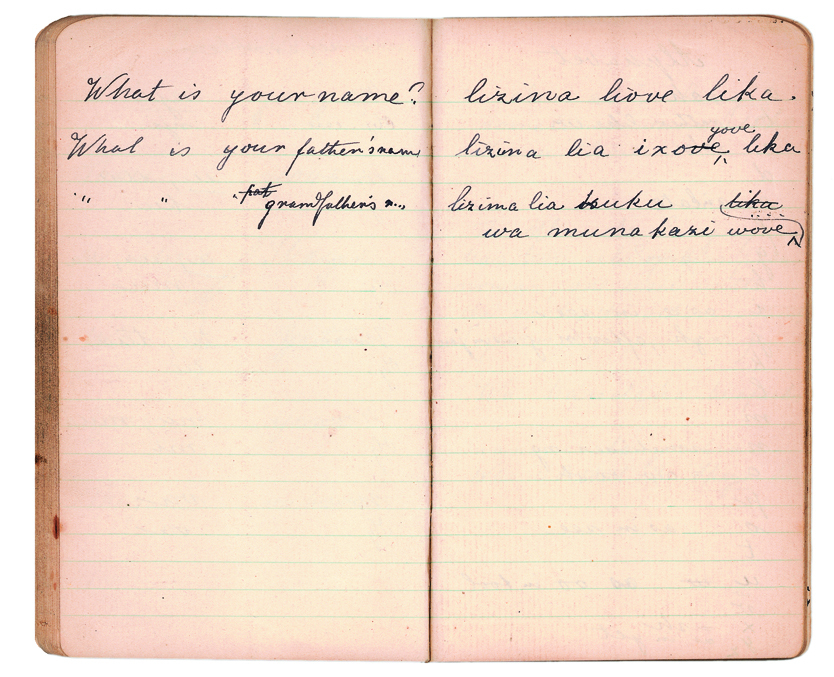 What is your name? lizina liove lika.
What is your father's name lizina lia ixove yove lika
" " " grandfather's n... lizina lia kuku lika
wa munakazi wove